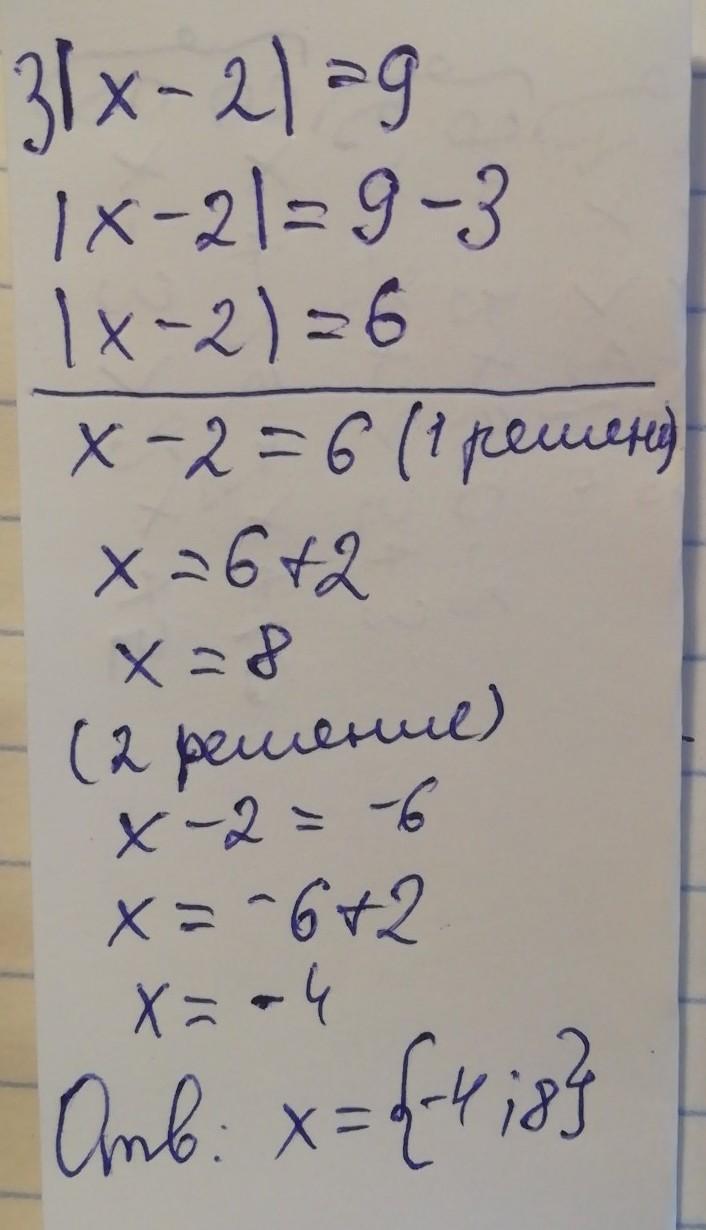 3|x-2|=9
|x-2|=9-3
|x-2|=6
x-2=6 (1 решени)
x=6+2
x=8
(2 решение)
x-2= -6
x= -6+2
x= -4
Отв: x={-4;8}